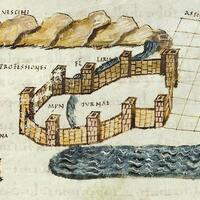 VESCINI
ASSI
PROFESSIONES FL LIRIS
MIN TURNAE
NA